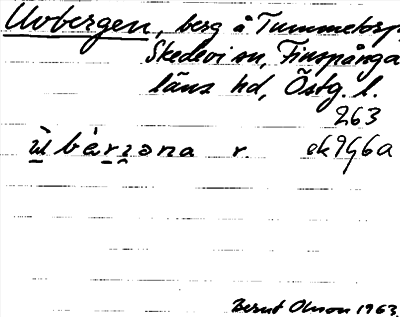 Uvbergen, berg å Tummetorp,
Skedevi sn, Finspånga
läns hd, Östg. l.
263
bàrzəna r. ek 9G6a
Bernt Olsson 1963.